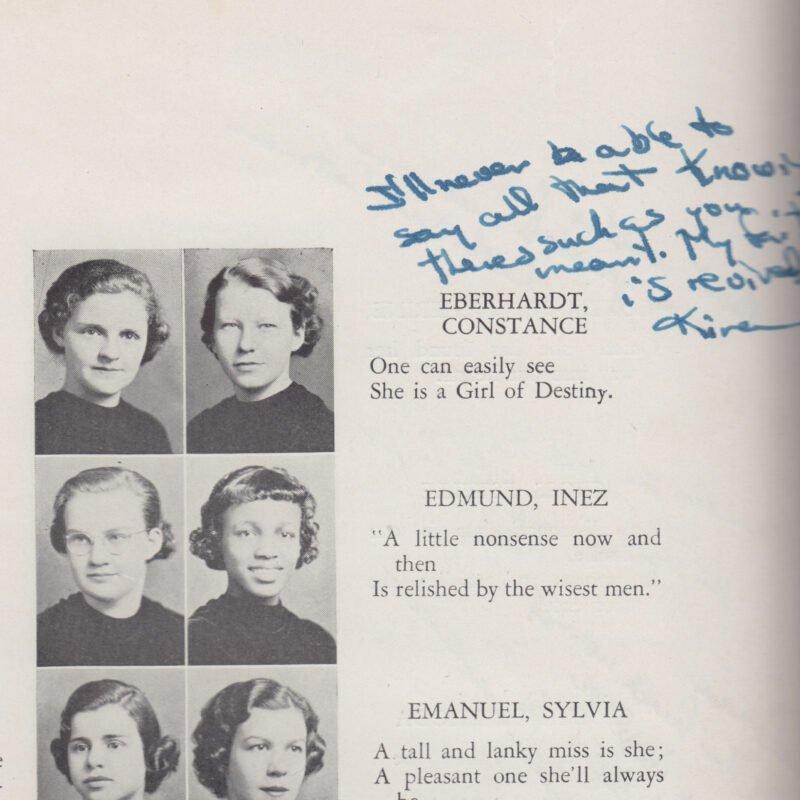 I'll never be able to
say all that knowi
theres such as you
meant. My
is revived
EBERHARDT,
CONSTANCE
One can easily see
She is a Girl of Destiny.
EDMUND, INEZ
"A little nonsense now and
then
Is relished by the wisest men."
EMANUEL, SYLVIA
A tall and lanky miss is she;
A pleasant one she'll always
be